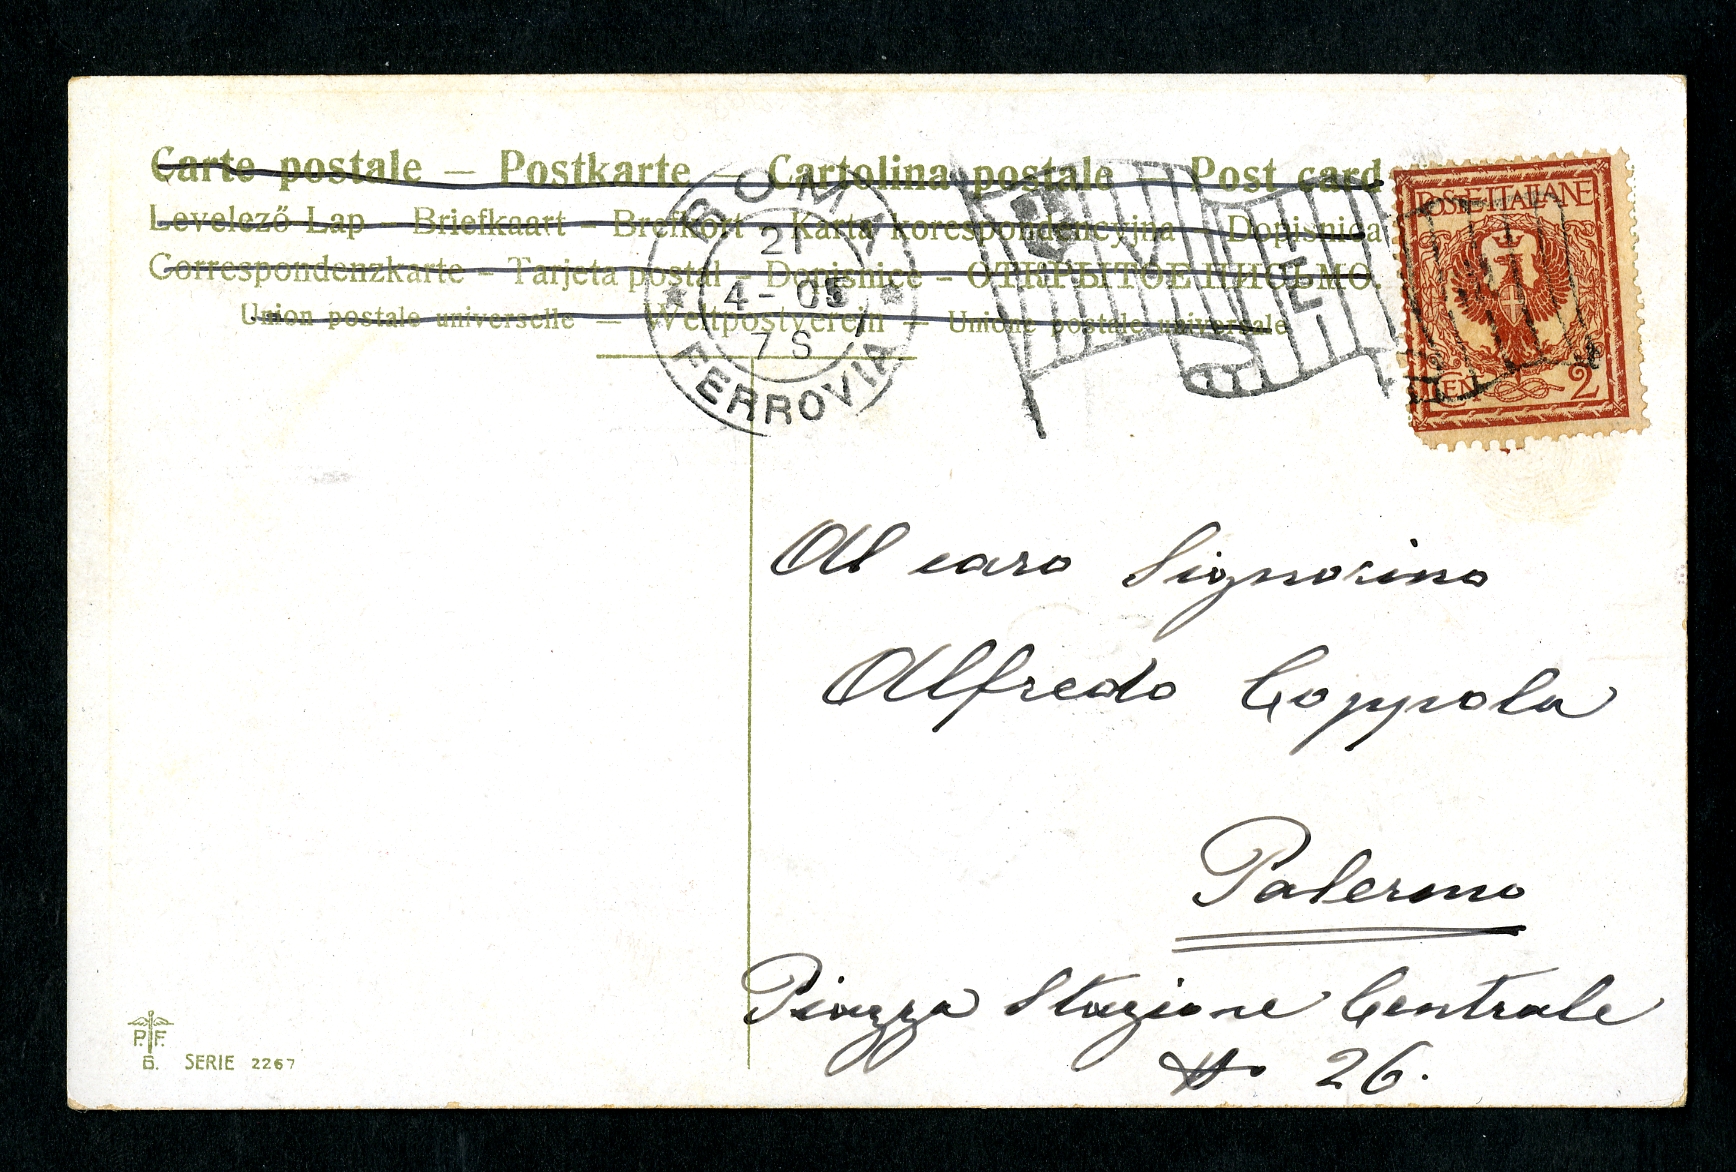 Carte postale – Postkarte – Cartolina postale – Post card
Levelező-Lap – Briefkaart – Brefkort – Karta korespondencyjna – Dopisnica
Correspondenzkarte – Tarjeta postal – Dopisnice – ОТКРЫТОЕ ПИСЬМО.
Union postale universelle – Weltpostverein – Unione postale universale
ROMA
21
4 - 05
7 S
FERROVIA
POSTE ITALIANE
CEN. 2
Al caro Signorino
Alfredo Coppola
Palermo
Piazza Stazione Centrale
No 26.
P. F.
B. SERIE 2267